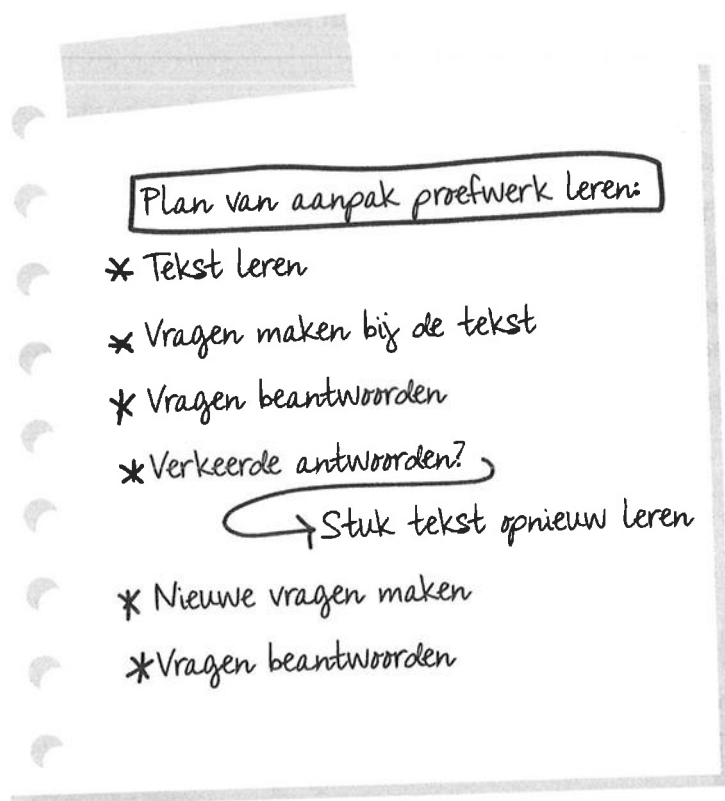 Plan van aanpak proefwerk leren:
* Tekst leren
* Vragen maken bij de tekst
* Vragen beantwoorden
* Verkeerde antwoorden?
→ Stuk tekst opnieuw leren
* Nieuwe vragen maken
* Vragen beantwoorden